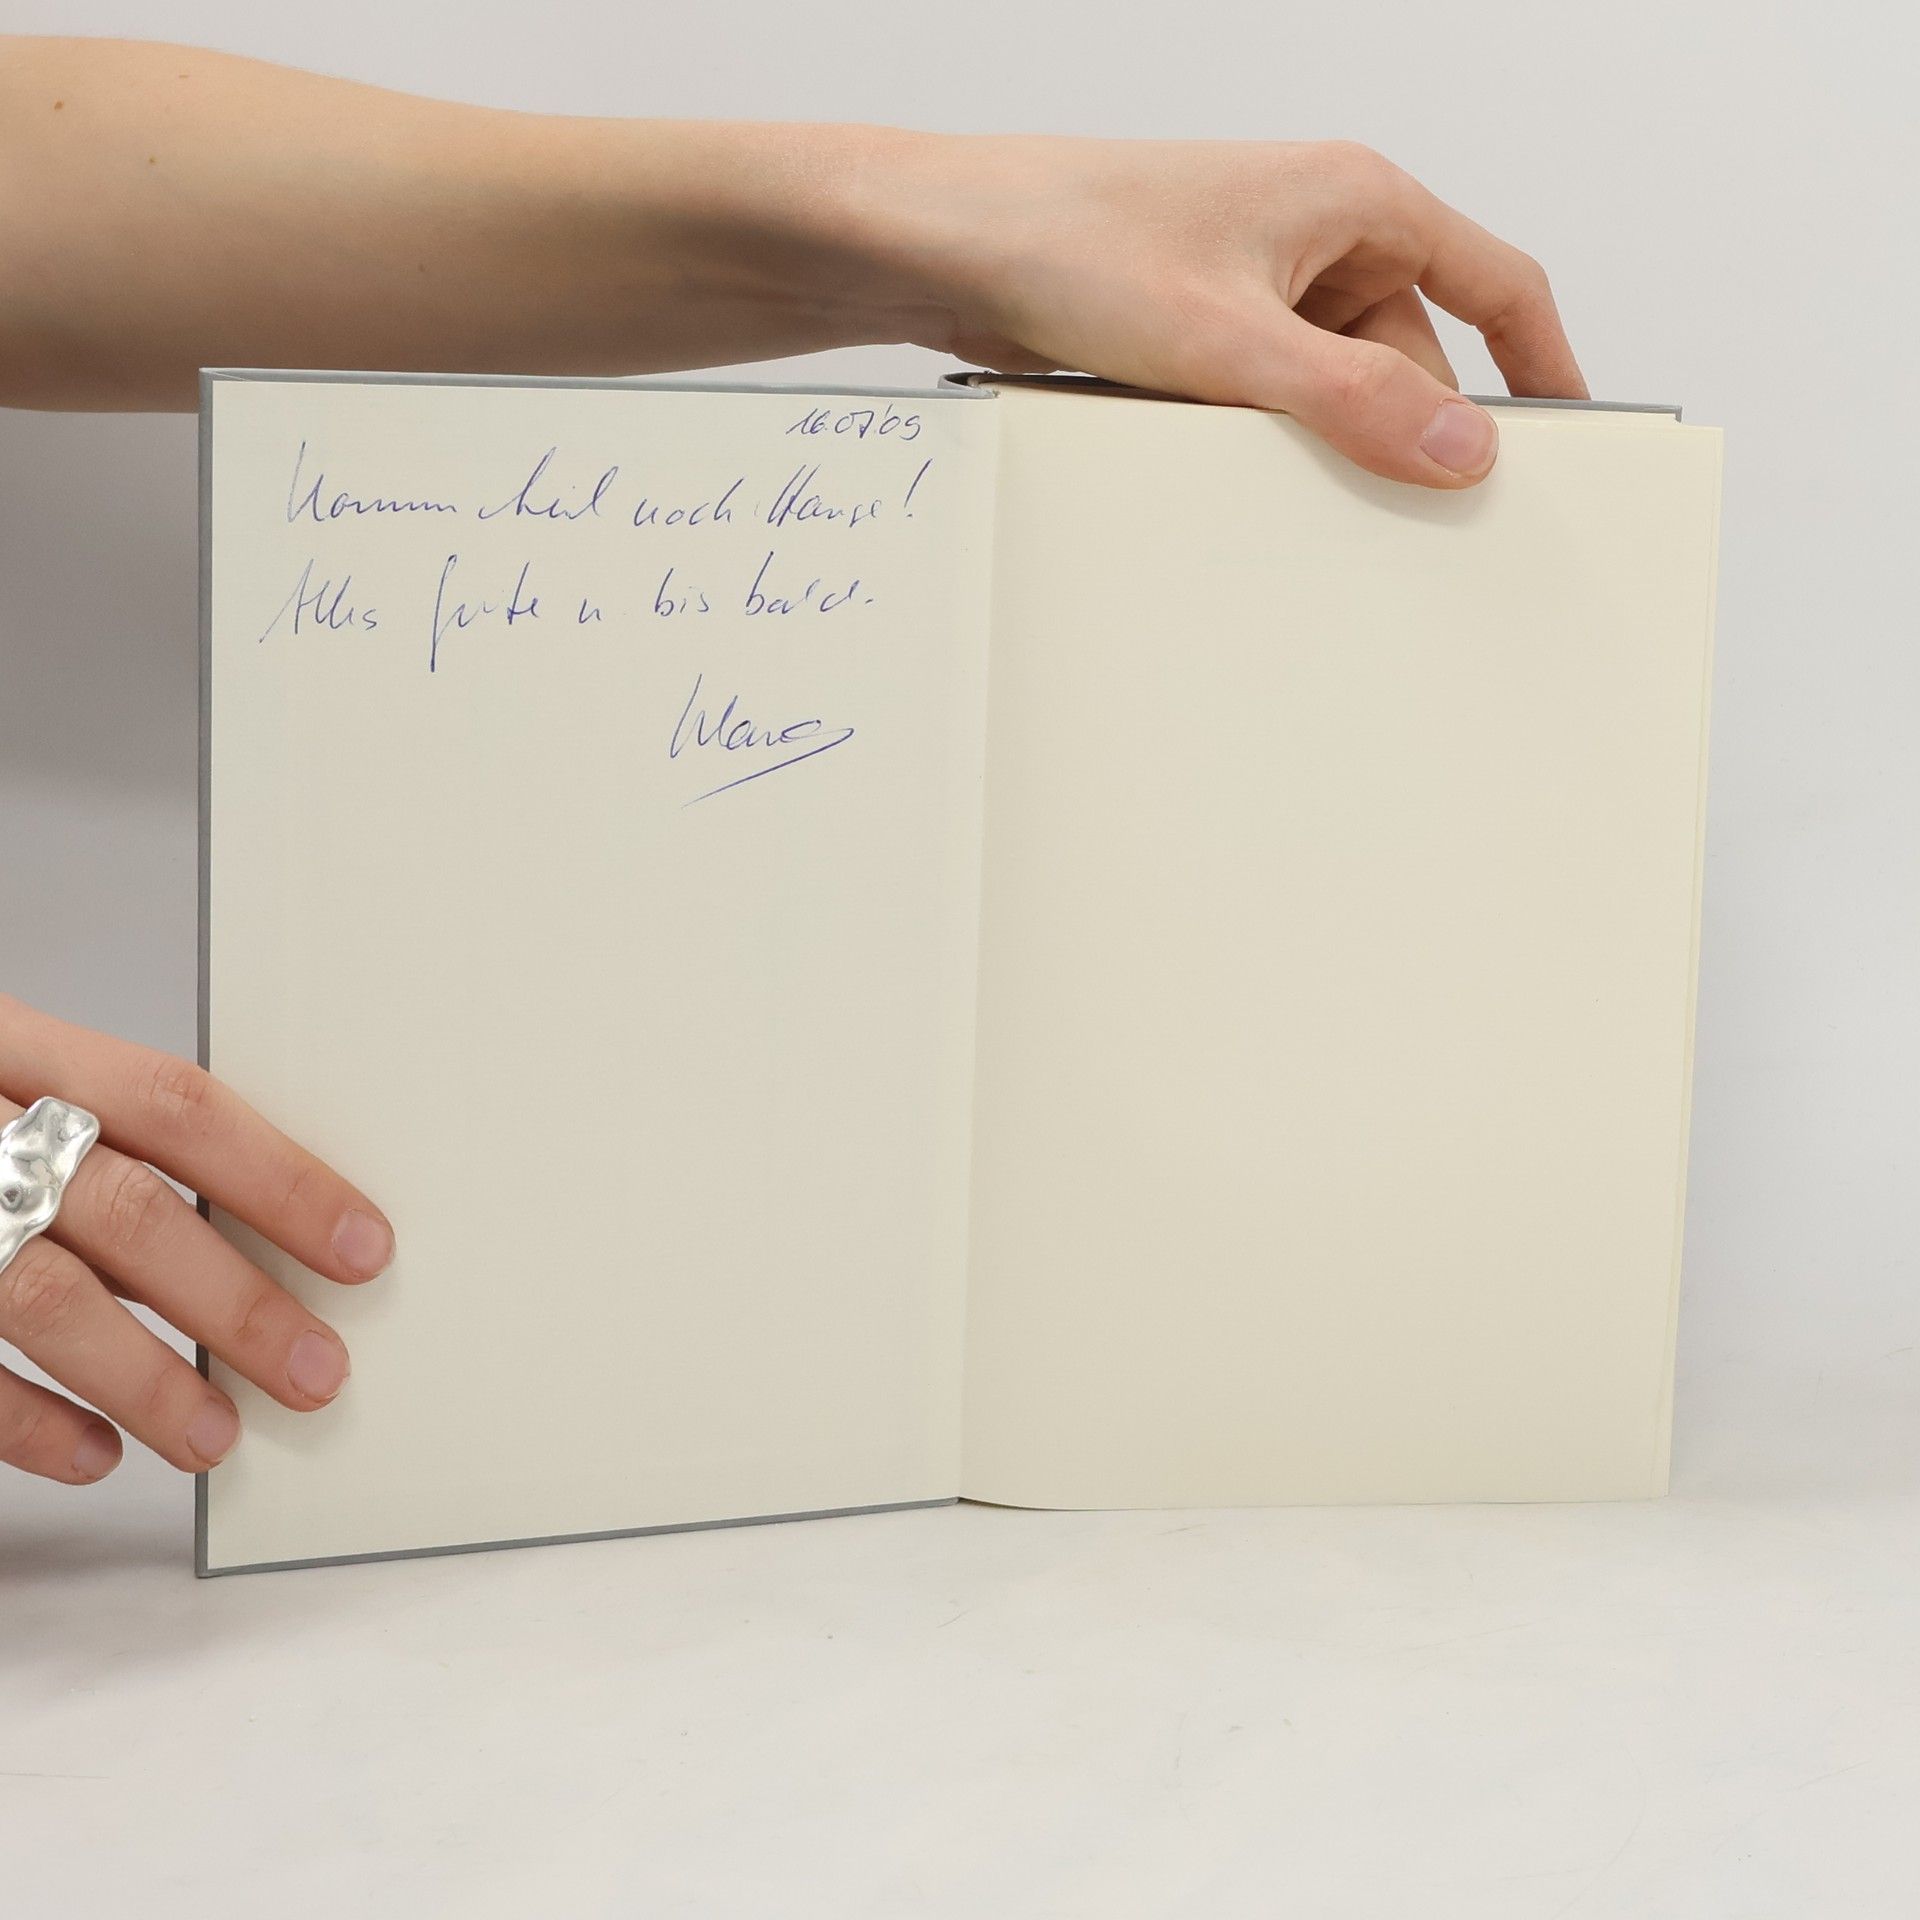 16.07.'09
Komm heil nach Hause!
Alles Gute u. bis bald.